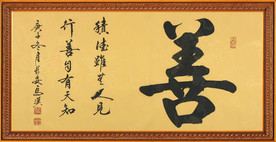 善
積德雖無人見
行善自有天知
庚子冬月